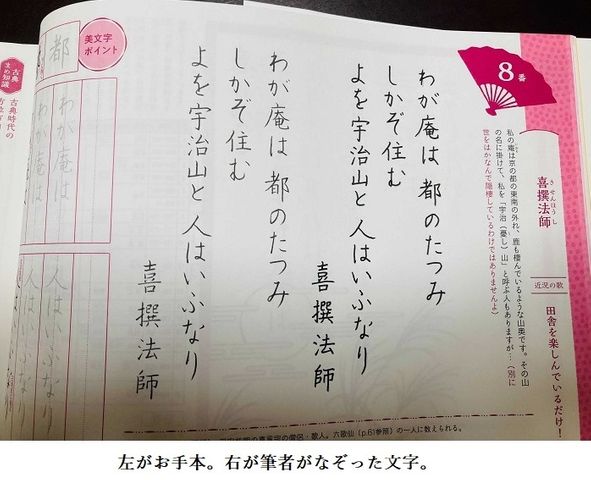 8番
喜撰法師
きせんほうし
近況の歌
田舎を楽しんでいるだけ！
私の庵は京の都の東南の外れ、鹿も棲んでいるような山奥です。その山
の名に掛けて、私を「宇治（憂し）山」と呼ぶ人もありますが…（別に
世をはかなんで隠棲しているわけではありませんよ）
わが庵は 都のたつみ
しかぞ住む
よを宇治山と 人はいふなり
喜撰法師
わが庵は 都のたつみ
しかぞ住む
よを宇治山と 人はいふなり
喜撰法師
美文字
ポイント
都
わが庵は
わが庵は
人はいふなり
人はいふなり
古典
まめ知識
古典時代の
の僧侶・歌人。六歌仙（p.61参照）の一人に数えられる。
左がお手本。右が筆者がなぞった文字。